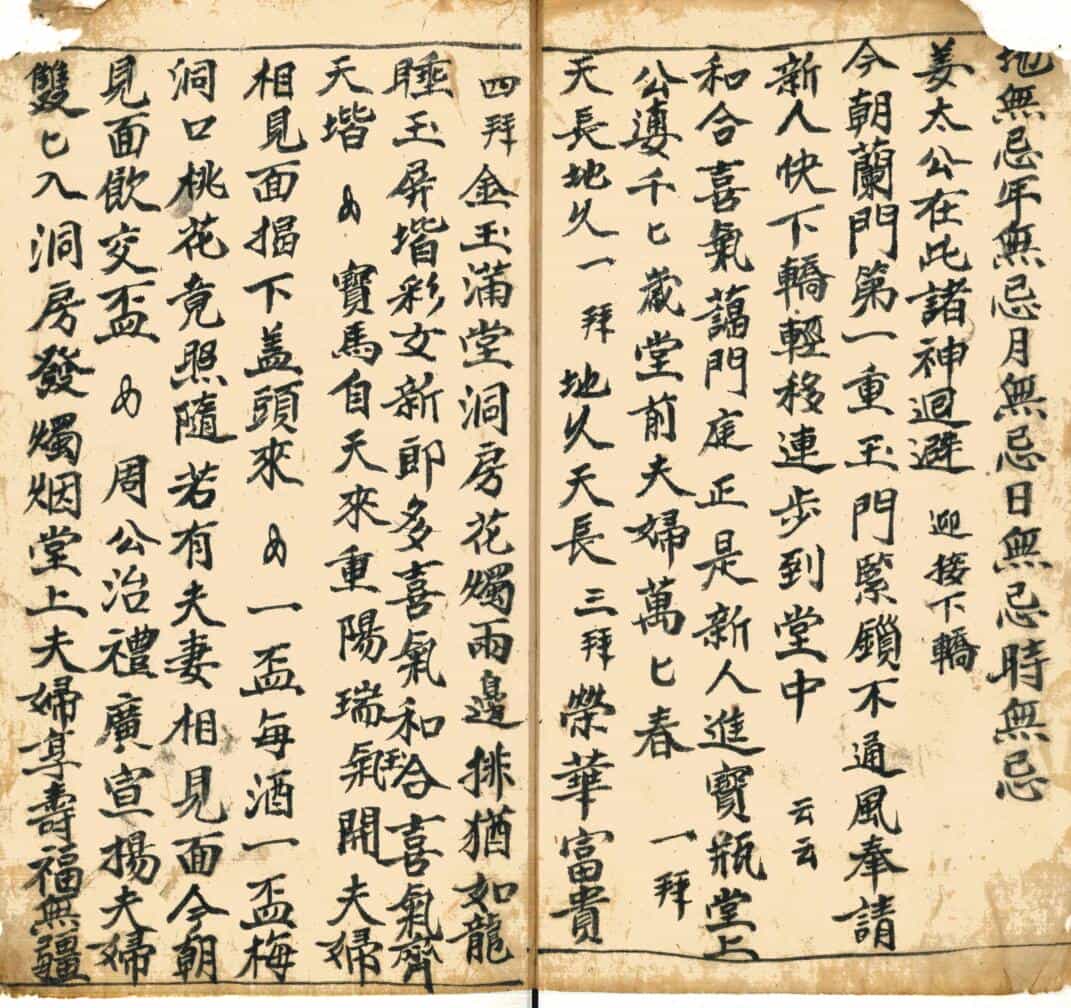 地無忌年無忌月無忌日無忌時無忌
姜太公在此諸神迴避 迎接下轎
今朝蘭門第一重玉門緊鎖不通風奉請
新人快下轎輕移連步到堂中 云云
和合喜氣藹門庭正是新人進寶瓶堂上
公婆千匕歲堂前夫婦萬匕春 一拜
天長地久一拜 地久天長三拜 榮華富貴
四拜 金玉滿堂洞房花燭兩邊排猶如龍
睡玉屏堦彩女新郎多喜氣和合喜氣齊
天堦 寶馬自天來重陽瑞氣開夫婦
相見面揭下盖頭來 一盃每酒一盃梅
洞口桃花竟照隨若有夫妻相見面今朝
見面飲交盃 周公治禮廣宣揚夫婦
雙匕入洞房發燭烟堂上夫婦享壽福無疆